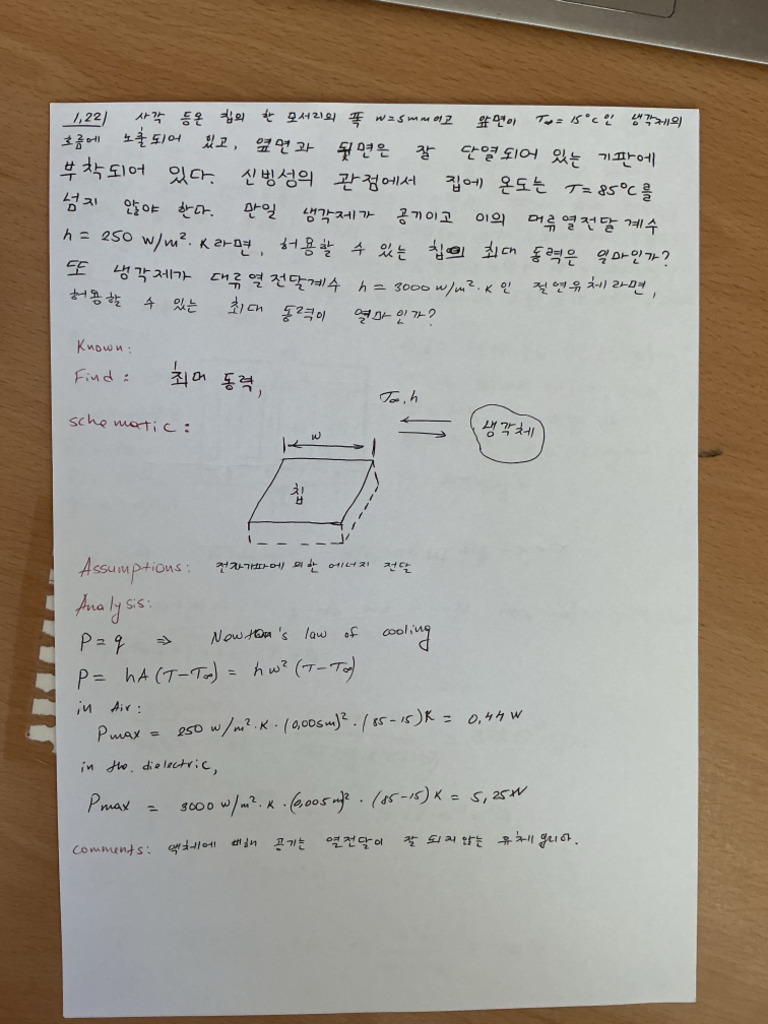 1,22) 사각 등온 칩의 한 모서리의 폭 w=5mm이고 앞면이 T∞=15°C인 냉각제의
흐름에 노출되어 있고, 옆면과 뒷면은 잘 단열되어 있는 기판에
부착되어 있다. 신빙성의 관점에서 칩에 온도는 T=85°C를
넘지 않아야 한다. 만일 냉각제가 공기이고 이의 대류열전달계수
h = 250 W/m²·K라면, 허용할 수 있는 칩의 최대 동력은 얼마인가?
또 냉각제가 대류열전달계수 h = 3000 W/m²·K인 절연유체라면,
허용할 수 있는 최대 동력이 얼마인가?
Known:
Find: 최대 동력,
T∞, h
schematic:
w
냉각체
칩
Assumptions: 전자기파에 의한 에너지 전달
Analysis:
P = q ⇒ Newton's law of cooling
P = hA(T-T∞) = hw²(T-T∞)
in Air:
Pmax = 250 W/m²·K·(0,005m)²·(85-15)K = 0,44 W
in the dielectric,
Pmax = 3000 W/m²·K·(0,005m)²·(85-15)K = 5,25W
comments: 액체에 비해 공기는 열전달이 잘 되지않는 유체